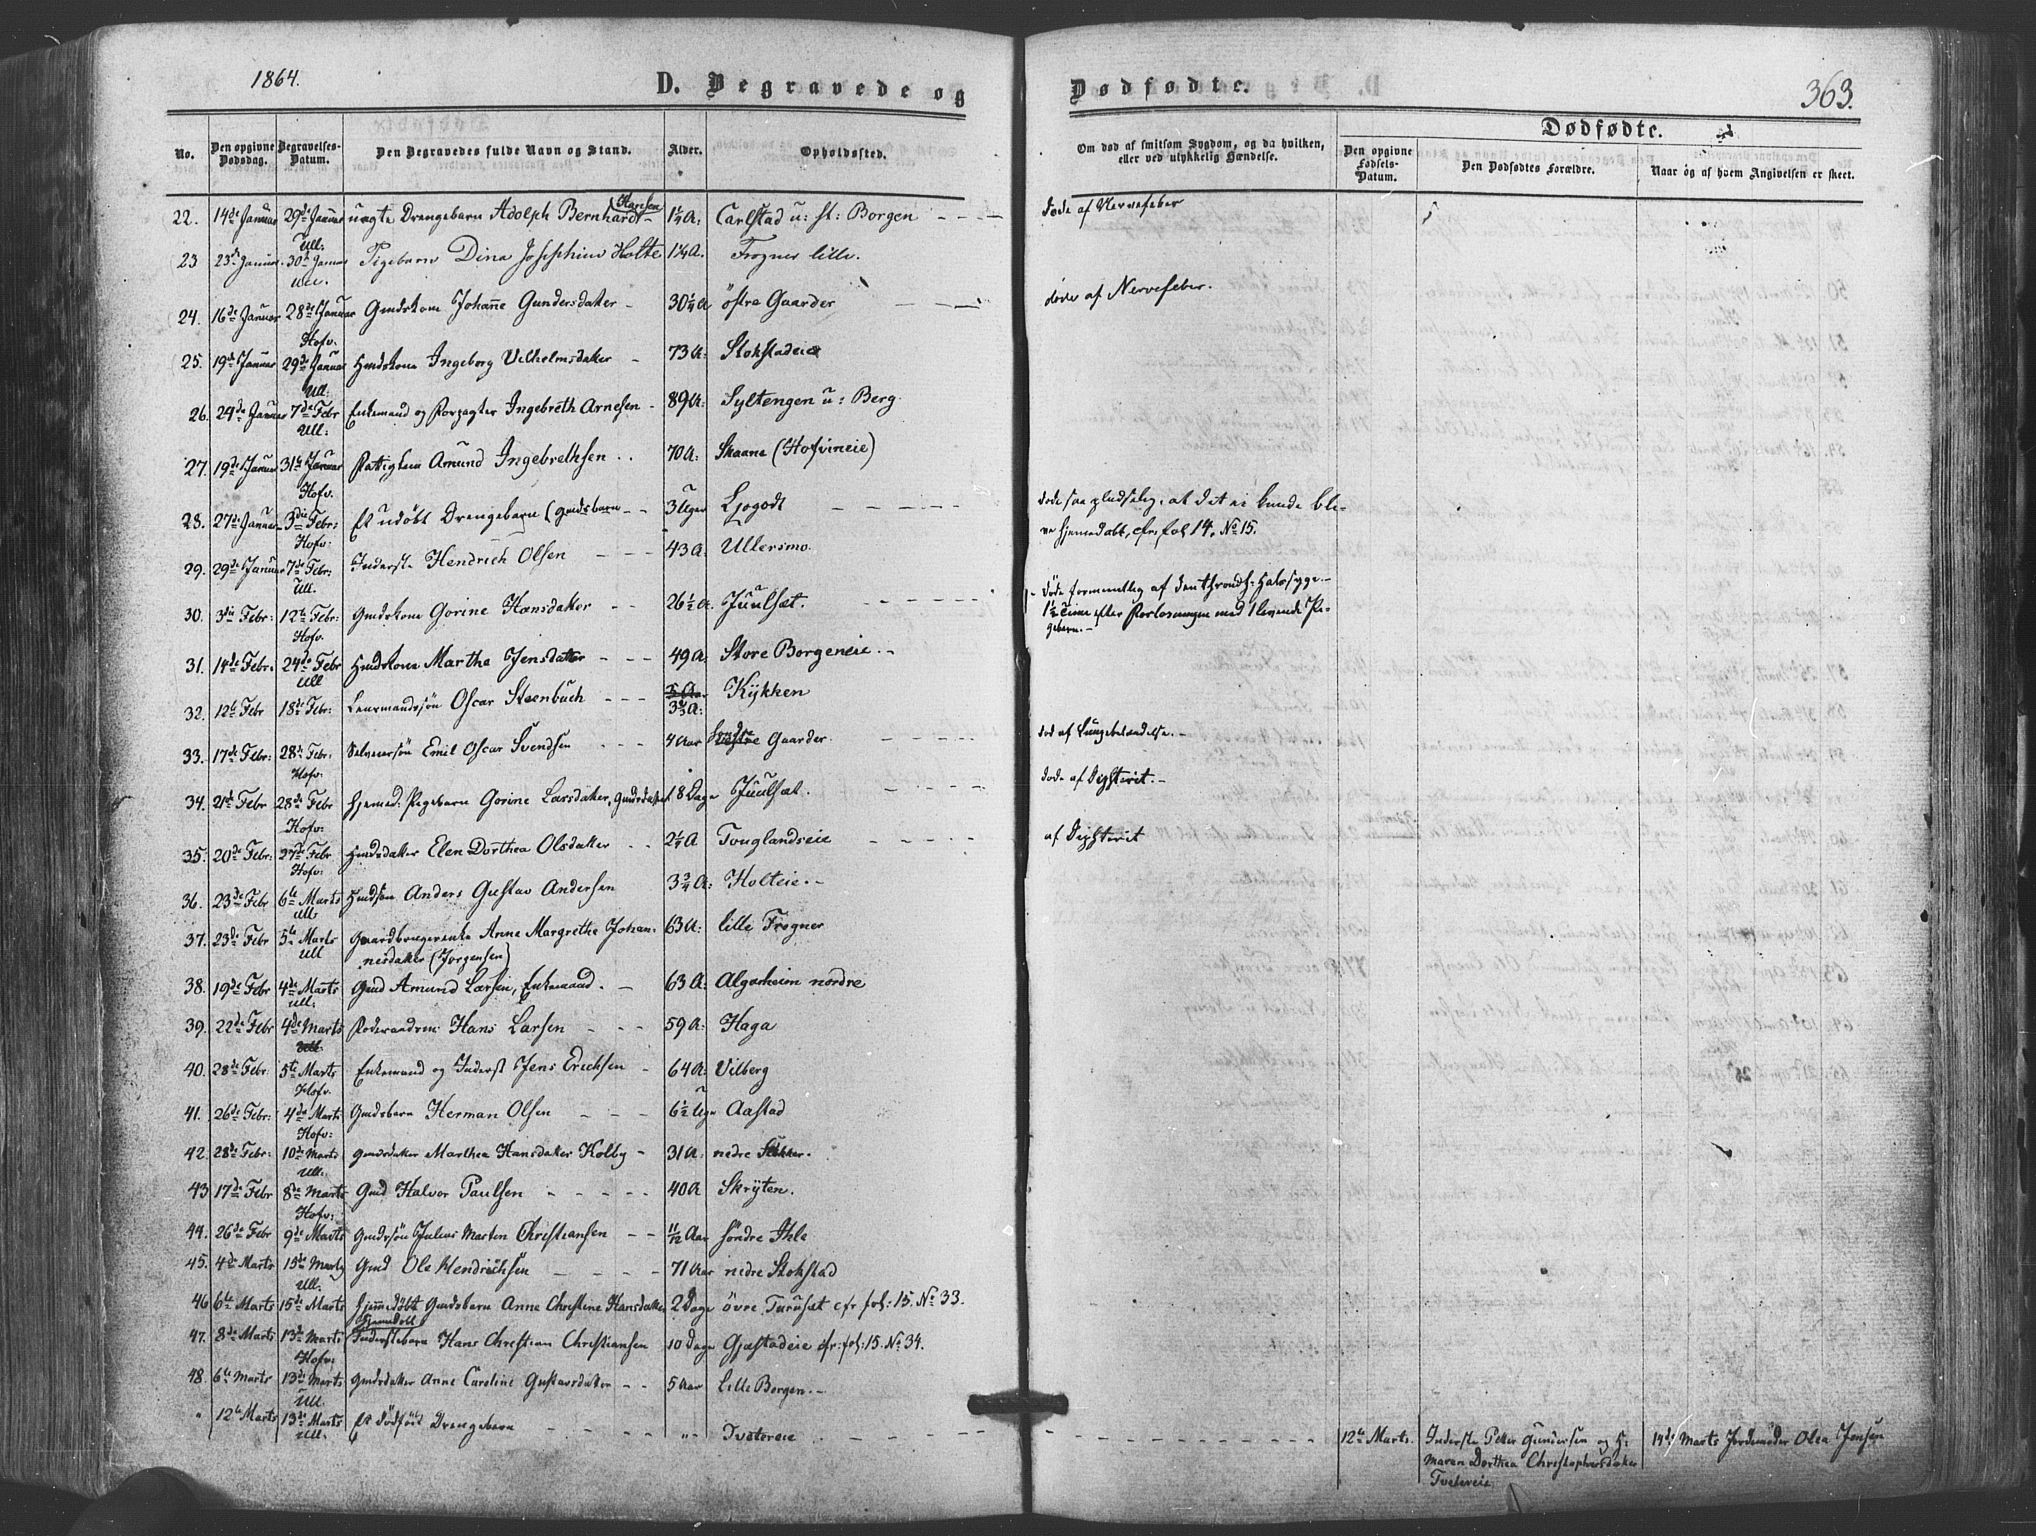 1864.
D. Begravede og Dødfødte.
363.
No. Den opgivne Dødsdag. Begravelses-Datum. Den Begravedes fulde Navn og Stand. Alder. Opholdssted.
Om død af smitsom Sygdom, og da hvilken, eller ved ulykkelig Hændelse.
Dødfødte.
Den opgivne Fødsels-Datum. Den Dødfødtes Forældre. Naar og af hvem Angivelsen er skeet.
Hansen
22. 14de Januar 29de Januar uægte Drengebarn Adolph Bernhardt 1¼ A: Carlstad u: st: Borgen - - - døde af Nervefeber
Ull:
23 23de Januar. 30te Januar Pigebarn Dina Josephine Holte 1¼ A. Frogner lille.
Ull.
24. 16de Januar 28de Januar Gmdskone Johanne Gundersdatter - 30¼ A østre Gaarder - - - døde af Nervefeber.
Hofv.
25. 19de Januar 29de Januar Hmdskone Ingeborg Vilhelmsdatter - 73 A: Stokstadeie
Ull:
26. 24de Januar 7de Febr Enkemand og Forpagter Ingebreth Arnesen - 89 A: Syltengen u: Berg.
Ull:
27. 19de Januar 31te Januar Fattiglem Amund Ingebrethsen . . 70 A: Skaane (Hofvineie)
Hofv.
28. 27de Januar 3die Febr: Et udøbt Drengebarn (Gmdsbarn - - 3 Uger Ljogodt - - - - døde saa pludselig, at det ei kunde bli-
Hofv: ve hjemmedøbt, cfr. fol 14. No 15.
29. 29de Januar 7de Febr: Inderste Hendrich Olsen - - - 43 A: Ullersmo.
Ull.
30. 3die Febr: 12te Febr: Gmdskone Gorine Hansdatter - - 26½ A. Juulsæt. - - - - døde formentlig af den throndh: Halssyge -
Hofv. 1½ Time efter Forløsningen med 1 levende Pi-
gebarn. -
31. 14de Febr: 24de Febr Hmdskone Martha Jensdatter - - - 49 A: Store Borgeneie. -
Ull
32. 12te Febr 18de Febr: Lensmandssøn Oscar Steenbuch - - - 3 A. Kykken
3⅔ A:
33. 17de Febr: 28de Febr. Selveiersøn Emil Oscar Svendsen - - - 4 Aar Søndre Gaarder - - - død af Lungebetændelse. -
Hofv:
34. 21de Febr 28de Febr Hjemmed: Pigebarn Gorine Larsdatter, 8 Dage Juulsæt. - - - - døde af Diphterit. -
Hofv:
35. 20de Febr: 27de Febr Hmdsdatter Elen Dorthea Olsdatter - - 2¼ A Tveglandseie - - - - af Diphterit
Hofv:
36. 23de Febr 6te Marts Hmdsøn Anders Gustav Andersen 3¾ A: Holteie. -
Ull.
37. 23de Febr 5te Marts Gaardbrugerenke Anne Margrethe Johan- 63 A: lille Frogner
Ull nesdatter (Jørgensen)
38. 19de Febr 4de Marts Gmd Amund Larsen, Enkemand. - 63 A: Algarheim nordre
Ull.
39. 22de Febr 4de Marts Hans Larsen - - - 59 A: Haga
Ull.
40. 28de Febr. 5te Marts Enkemand og Inderst Jens Erichsen - 64 A: Vilberg
Hofv.
41. 26de Febr: 4de Marts Gmdsbarn Herman Olsen - - - 6½ Uge Aastad
Hofv:
42. 28de Febr: 10de Marts Gmdsdatter Marthea Hansdatter Kolby - 31 A: nedre
Ull:
43 17de Febr 8de Marts Gmd Halvor Paulsen - - - - 40 A Skryten.
Hofv:
44. 26de Febr 9de Marts Gmdssøn Julius Marten Christiansen - - 11/12 Aar søndre Ihle
45. 4de Marts 15de Marts Gmd Ole Hendrichsen - - - - 71 Aar nedre Stokstad
Ull:
46 6te Marts 15de Marts Hjemmedøbt Gmdsbarn Anne Christine Hansdatter 2 Dage øvre Turuset cfr fol: 15. No 33.
Hjemmedøbt
47. 8de Marts 13de Marts Inderstebarn Hans Christian Christiansen 10 Dage Gjestadeie cfr: fol: 15. No 34.
Hofv:
48. 6te Marts 13de Marts Gmdsdatter Anne Caroline Gustavsdatter - - 5 Aar Lille Borgen. -
Ull.
" 12te Marts 13de Marts Et dødfødt Drengebarn - - - - "- Tvetereie - - - - 12te Marts. Inderste Peter Gundersen og H: 14de Marts Jordemoder Olea Jensen
Ull. Maren Dorthea Christophersdatter
Tvetereie